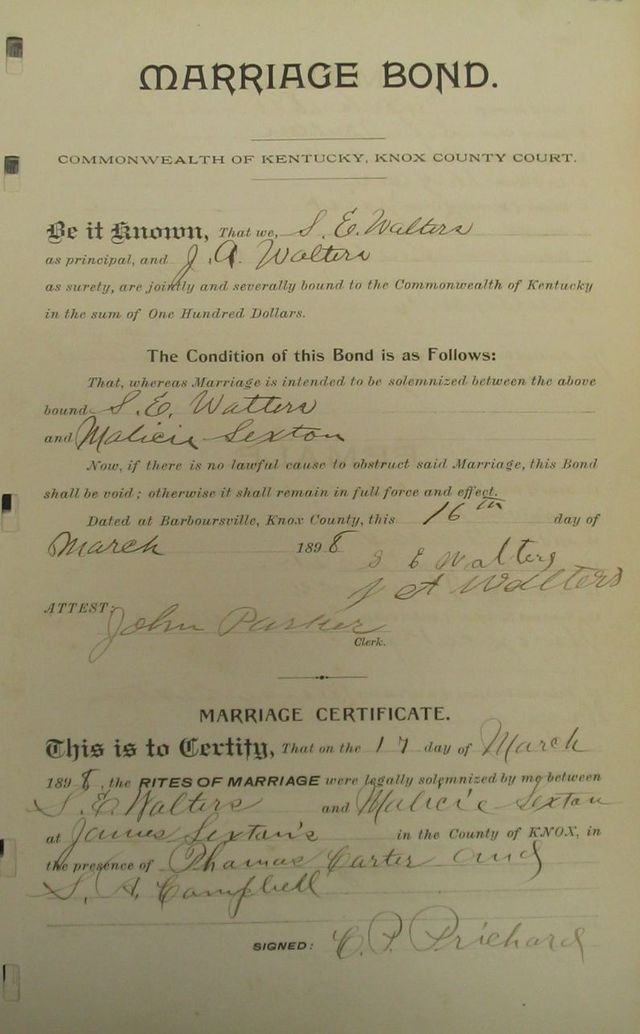 MARRIAGE BOND.
COMMONWEALTH OF KENTUCKY, KNOX COUNTY COURT.
Be it Known, That we, S. E. Walters
as principal, and J. A. Walters
as surety, are jointly and severally bound to the Commonwealth of Kentucky
in the sum of One Hundred Dollars.
The Condition of this Bond is as Follows:
That, whereas Marriage is intended to be solemnized between the above
bound S. E. Watters
and Malicie Sexton
Now, if there is no lawful cause to obstruct said Marriage, this Bond
shall be void; otherwise it shall remain in full force and effect.
Dated at Barboursville, Knox County, this 16th day of
March 1898
S E Walters
J A Walters
ATTEST:
John Parker
Clerk.
MARRIAGE CERTIFICATE.
This is to Certify, That on the 17 day of March
1898, the RITES OF MARRIAGE were legally solemnized by me between
S. E. Walters and Malicie Sexton
at James Sexton's in the County of KNOX, in
the presence of Thomas Carter and
S. A. Campbell
SIGNED: C. P. Prichard